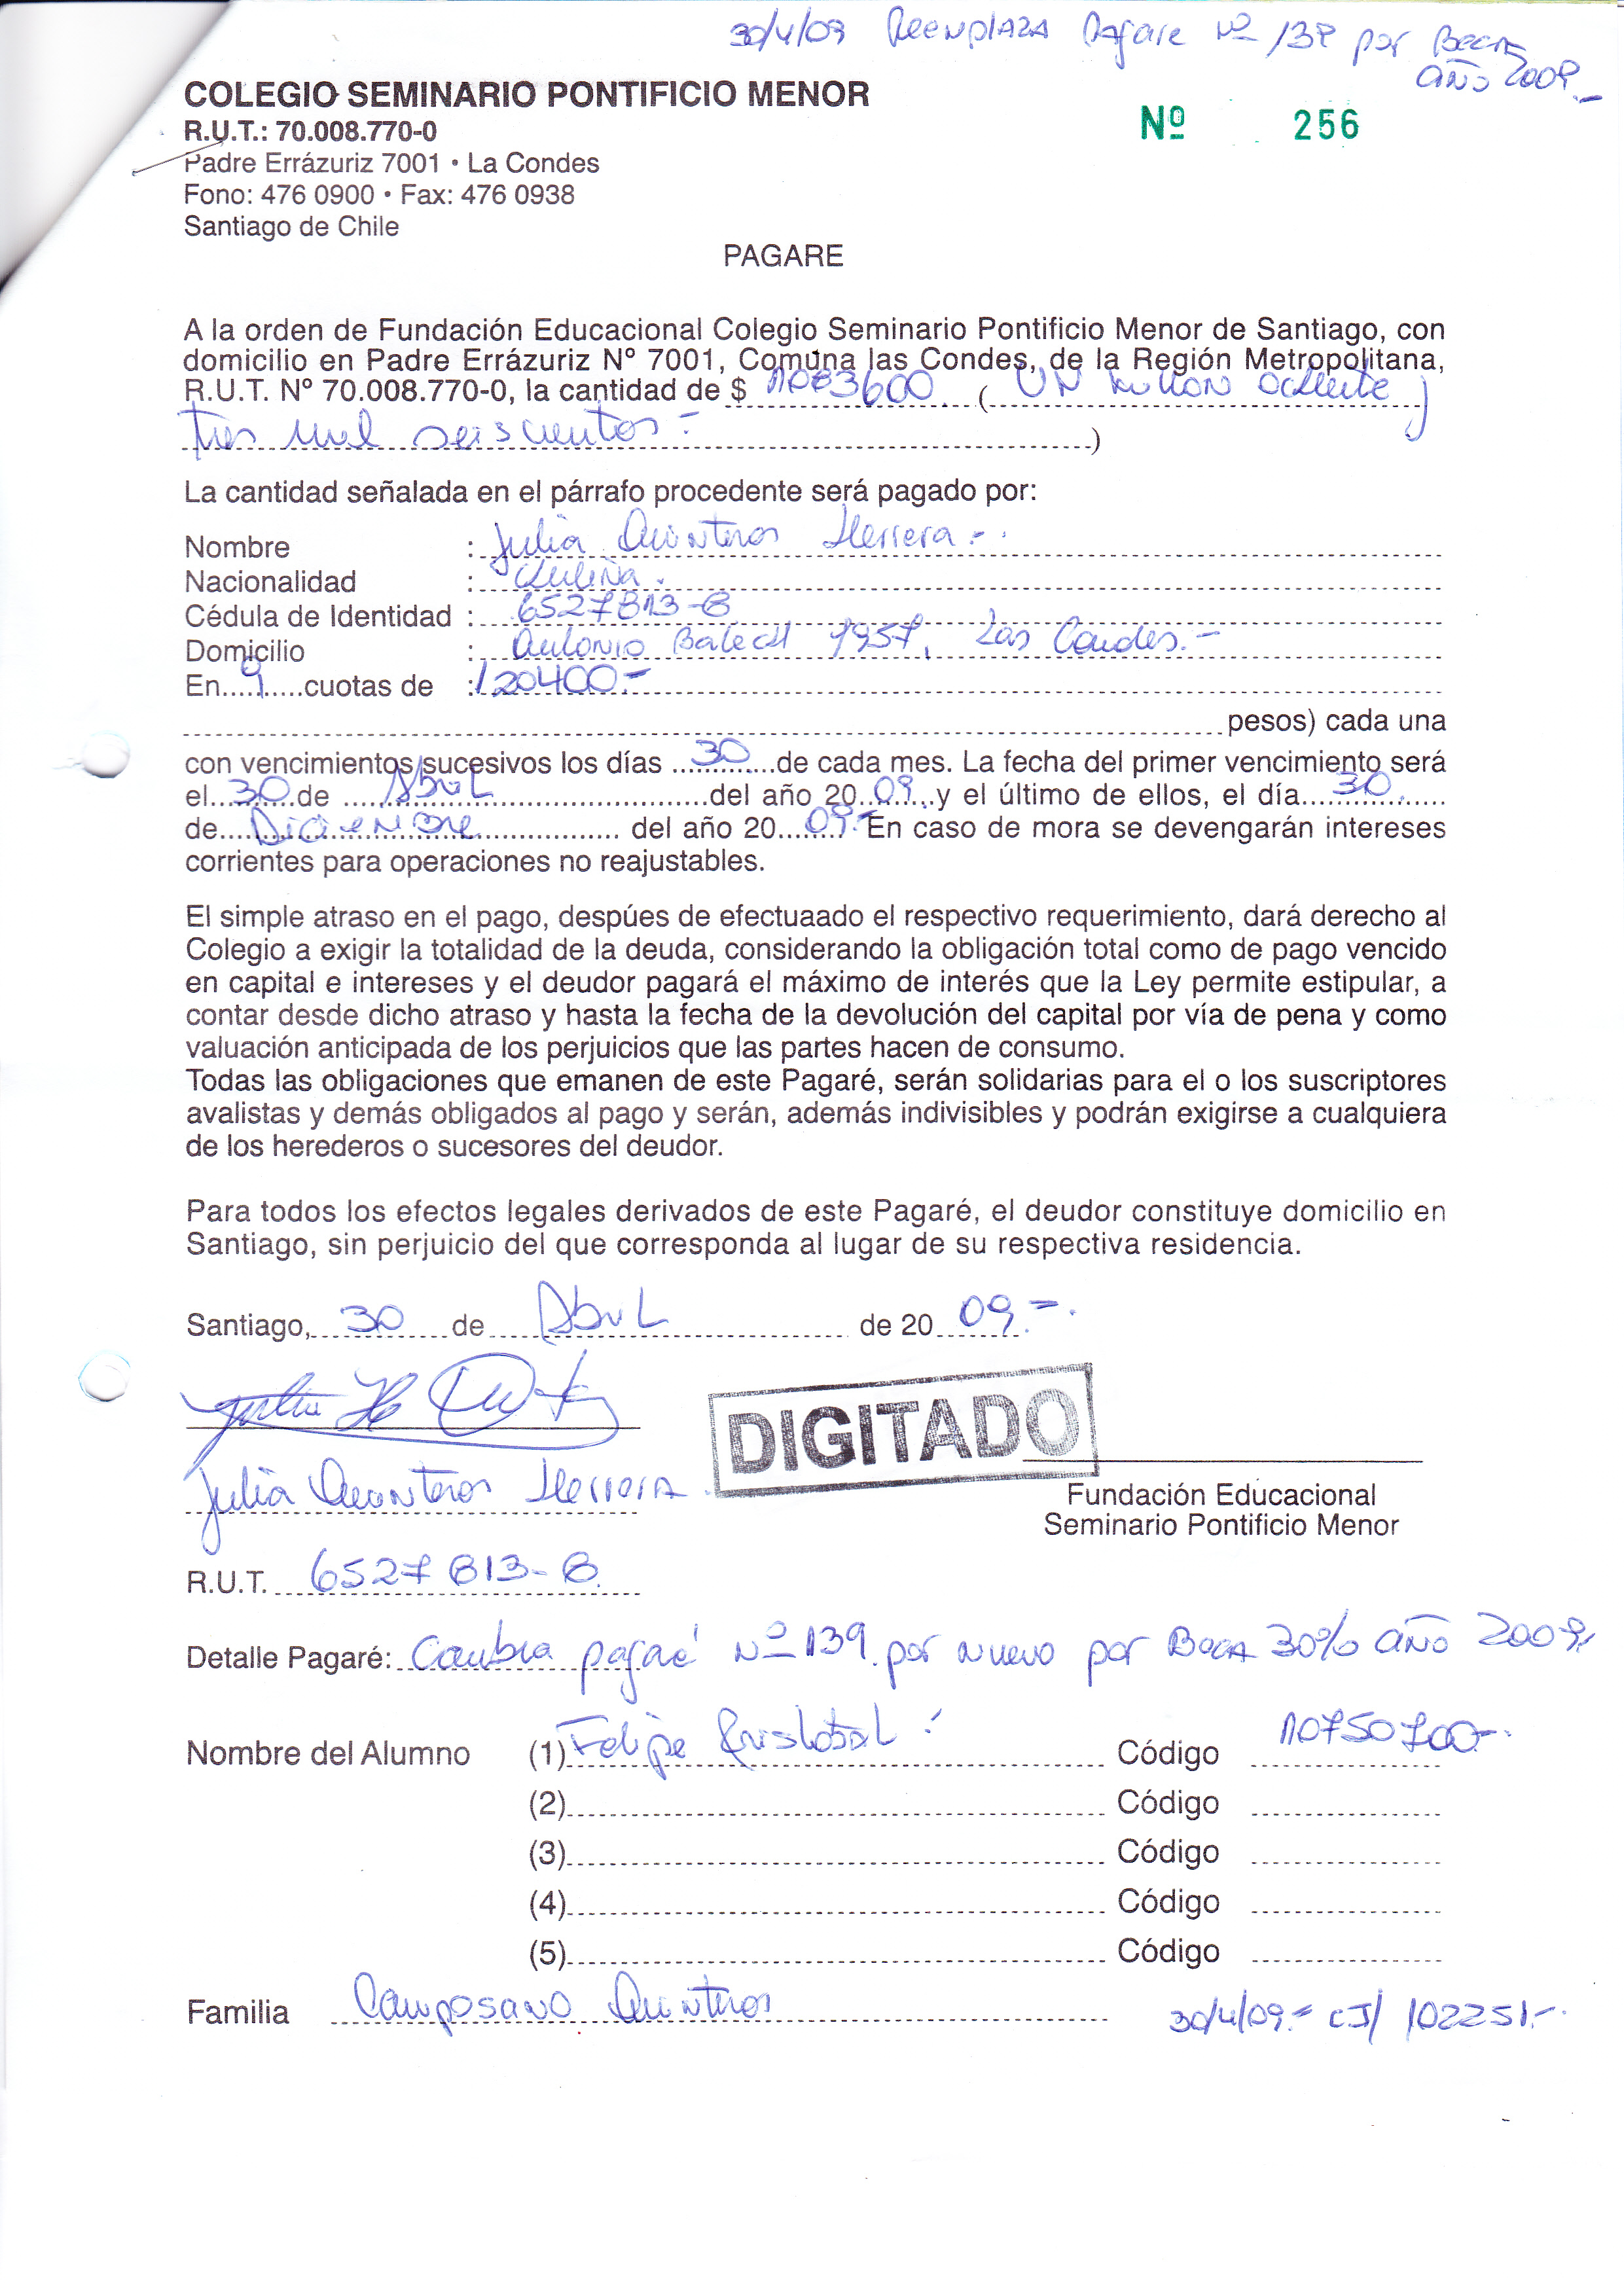 30/4/09 Reemplaza Pagare Nº 139 por Beca
año 2009.-
COLEGIO SEMINARIO PONTIFICIO MENOR
R.U.T.: 70.008.770-0
Padre Errázuriz 7001 • La Condes
Fono: 476 0900 • Fax: 476 0938
Santiago de Chile
Nº 256
PAGARE
A la orden de Fundación Educacional Colegio Seminario Pontificio Menor de Santiago, con
domicilio en Padre Errázuriz Nº 7001, Comuna las Condes, de la Región Metropolitana,
R.U.T. Nº 70.008.770-0, la cantidad de $ 1083600 ( UN millon ochenta y
tres mil seiscientos.- )
La cantidad señalada en el párrafo procedente será pagado por:
Nombre : Julia Quinteros Herrera.-
Nacionalidad : Chilena.
Cédula de Identidad : 6527813-8
Domicilio : Antonio 7957, Las Condes.-
En 9 cuotas de : 120400.-
pesos) cada una
con vencimientos sucesivos los días 30 de cada mes. La fecha del primer vencimiento será
el 30 de Abril del año 2009 y el último de ellos, el día 30
de Diciembre del año 2009.- En caso de mora se devengarán intereses
corrientes para operaciones no reajustables.
El simple atraso en el pago, despúes de efectuaado el respectivo requerimiento, dará derecho al
Colegio a exigir la totalidad de la deuda, considerando la obligación total como de pago vencido
en capital e intereses y el deudor pagará el máximo de interés que la Ley permite estipular, a
contar desde dicho atraso y hasta la fecha de la devolución del capital por vía de pena y como
valuación anticipada de los perjuicios que las partes hacen de consumo.
Todas las obligaciones que emanen de este Pagaré, serán solidarias para el o los suscriptores
avalistas y demás obligados al pago y serán, además indivisibles y podrán exigirse a cualquiera
de los herederos o sucesores del deudor.
Para todos los efectos legales derivados de este Pagaré, el deudor constituye domicilio en
Santiago, sin perjuicio del que corresponda al lugar de su respectiva residencia.
Santiago, 30 de Abril de 2009.-
DIGITADO
Julia Quinteros Herrera
Fundación Educacional
Seminario Pontificio Menor
R.U.T. 6527813-8
Detalle Pagaré: Cambia pagaré Nº 139 por nuevo por Beca 30% año 2009.
Nombre del Alumno (1) Felipe Cristobal Código 10750700-
(2) Código
(3) Código
(4) Código
(5) Código
Familia Camposano Quinteros
30/4/09.- CJ/ 102251.-